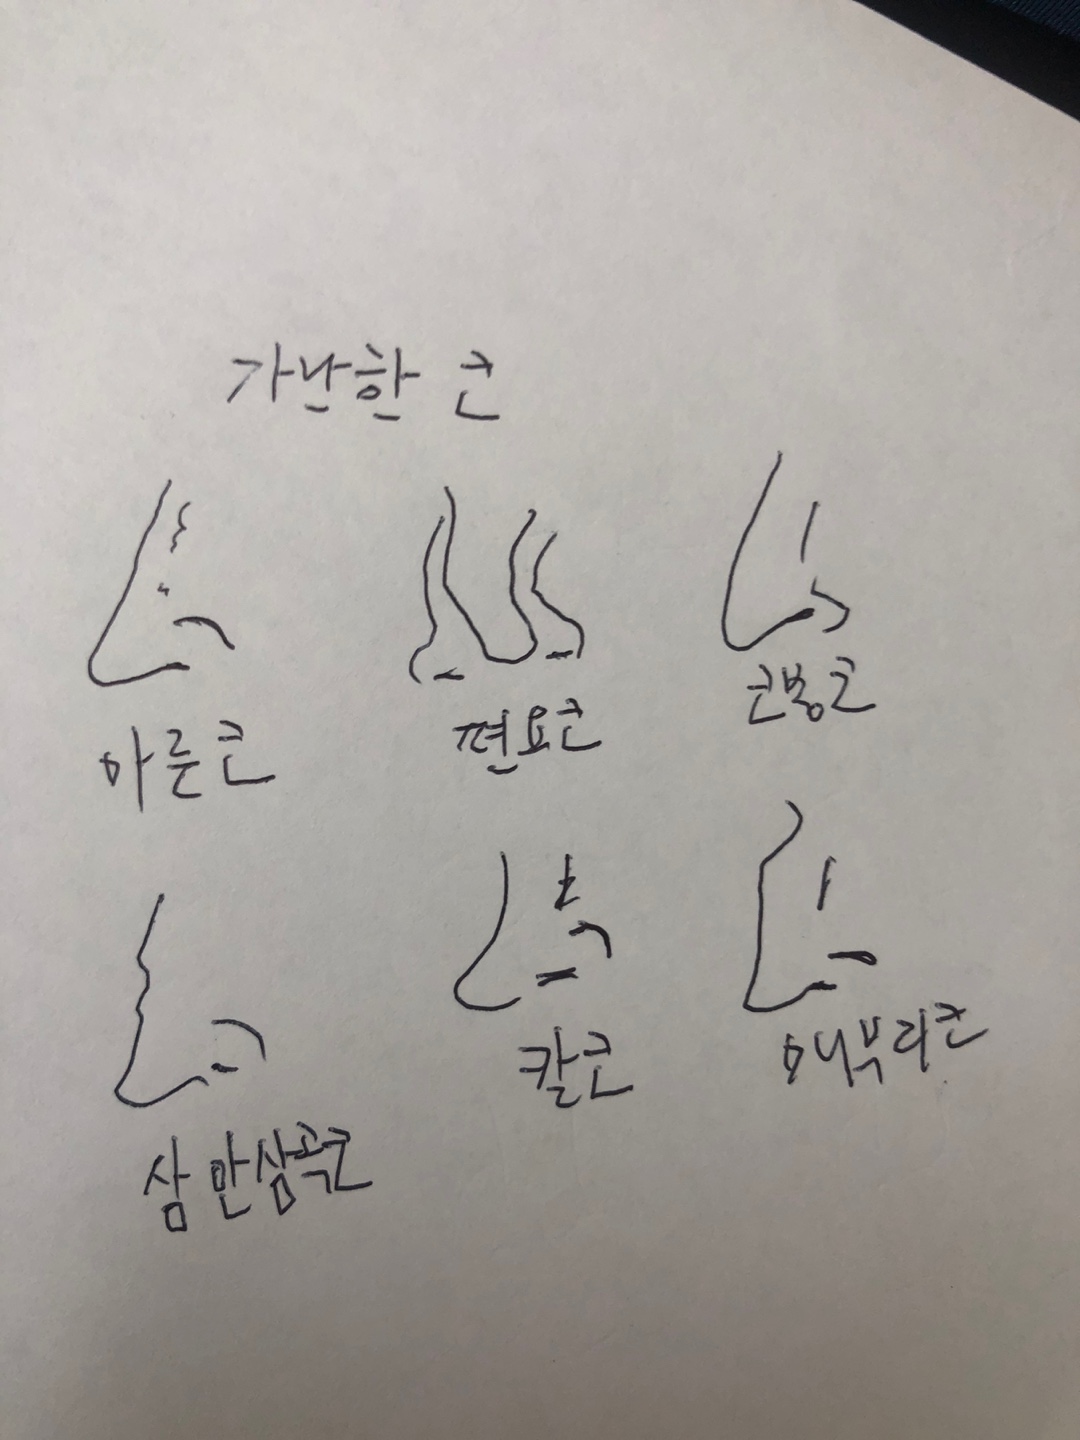 가난한 코
마른코
편요코
코봉코
삼만삼곡코
칼코
매부리코